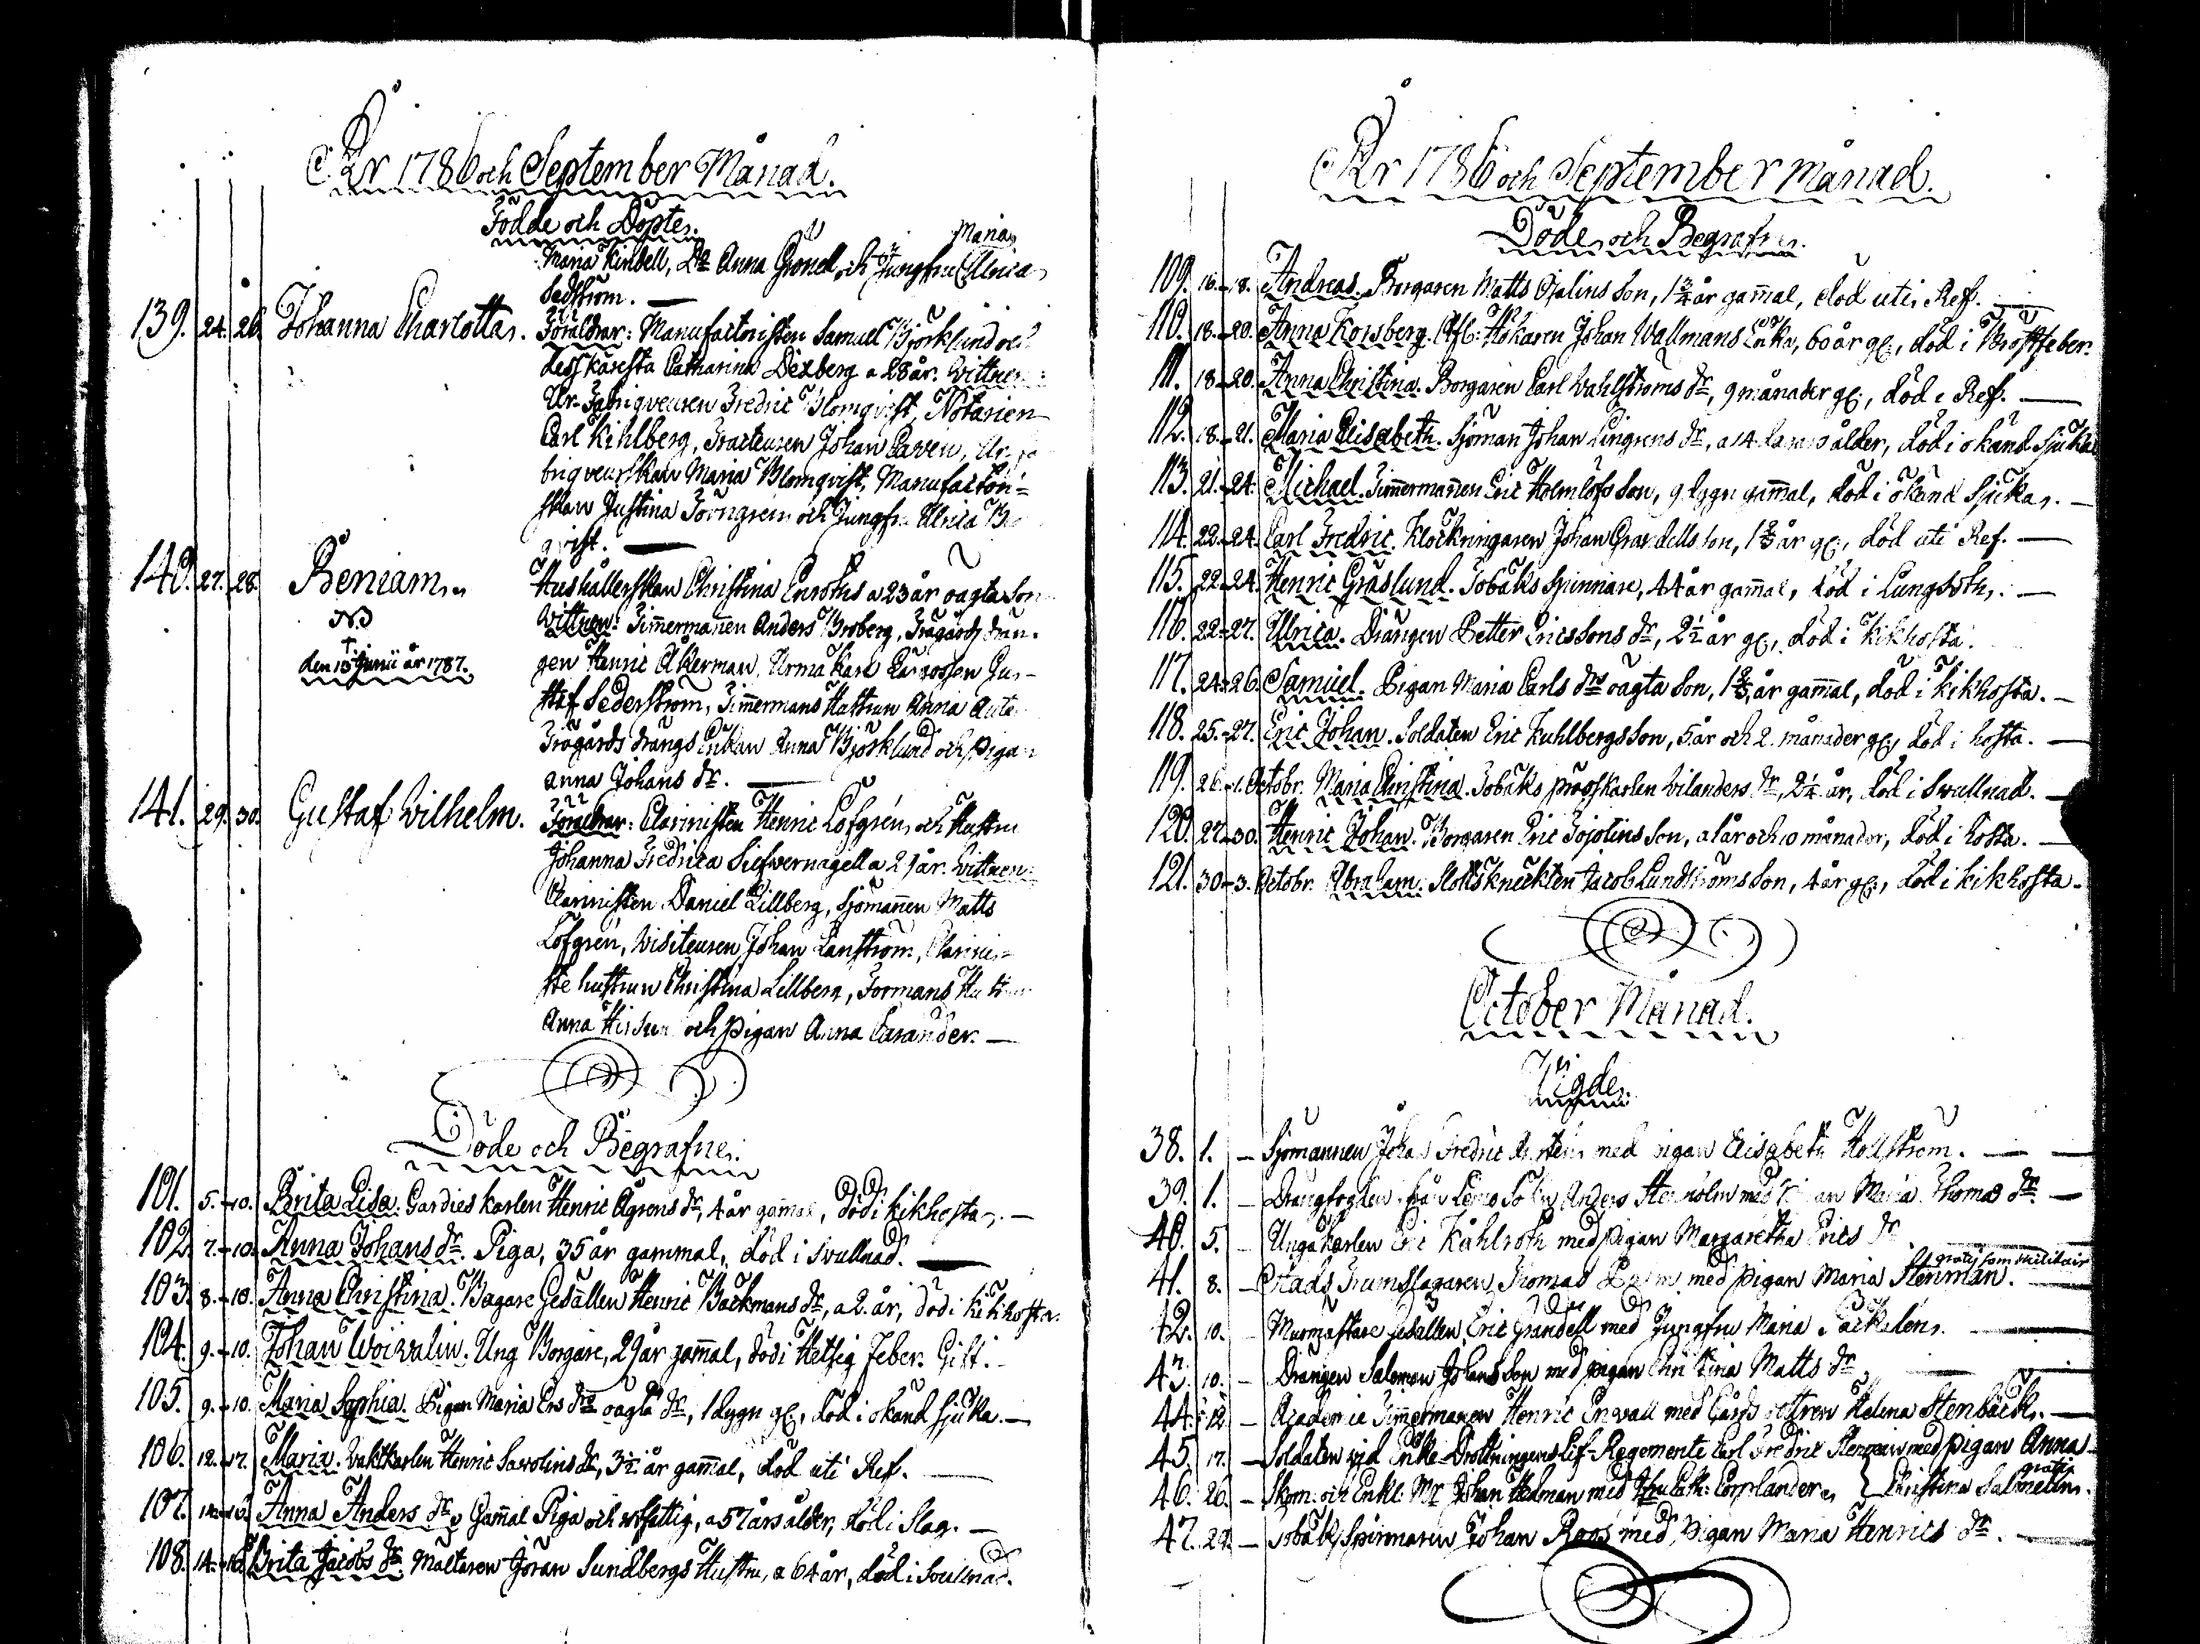 År 1786 och September Månad.
Födde och Döpte.
Maria
Maria Kinbell, Anna Gronel och Jungfru Ulrica
Sedstrom.
139. 24. 26. Johanna Charlotta. Föräldrar: Manufactoristen Samuel Björklund och
dess käresta Catharina Dexberg a 28 år. Wittnen:
Ur-Fabriqveuren Fredric Blomqvist, Notarien
Carl Kihlberg, Johan Caven,
briqveurskan Maria Blomqvist, Manufactori=
skan Justina Törngren och Jungfr. Ulrica
qvist.
140. 27. 28. Beniam. Hushållerskan Christina Enroths a 23 år oägta Son
NB Wittnen: Timmermannen Anders Broberg, Trägårds drän-
gen Henric Åkerman, Gus-
den 15 Junii år 1787.
taf Sederström, Timmermans Hustrun Anna
Trägårds drängs Enkan Anna Björklund och Pigan
Anna Johans dr.
141. 29. 30. Gustaf Wilhelm. Föräldrar: Clarinisten Henric Löfgren, och Hustru
Johanna Fredrica Siefvernagell a 29 år. Wittnen:
Clarinisten Daniel Lillberg, Sjömannen Matts
Löfgren, Visiteuren Johan Lanström, Clarini=
ste hustrun Christina Lillberg, Formans Hustrun
Anna och Pigan Anna Carander.
Döde och Begrafne.
101. 5.-10. Brita Lisa. Gardies karlen Henric Ågrens dr, 4 år gammal, död i kikhosta.
102. 7.-10. Anna Johans dr. Piga, 35 år gammal, död i Svullnad.
103. 8.-10. Anna Christina. Bagare Gesällen Henric Backmans dr, a 2. år, död i kikhosta.
104. 9.-10. Johan Woivalin. Ung Borgare, 29 år gammal, död i Hetsig Feber. Gift.
105. 9.-10. Maria Sophia. Pigan Maria Ers drs oägta dr, 1 dygn gl, död i okänd sjuka.
106. 12.-17. Maria. Vaktkarlen Henric Savolins dr, 3½ år gammal, död uti Ref.
107. Anna Anders dr, Gammal Piga och utfattig, a 57 års ålder, död i Slag.
108. 14.-16. Brita Jacobs dr. Mältaren Jöran Sundbergs Hustru, a 64 år, död i Svullnad.
År 1786 och September månad.
Döde och Begrafne.
109. 16.-18. Andreas. Borgaren Matts Ojalins Son, 1¾ år gammal, död uti Ref.
110. 18.-20. Anna Korsberg. Afl: Hökaren Johan Wallmans Enka, 60 år gl, död i Bröstfeber.
111. 18.-20. Anna Christina. Borgaren Carl Wahlströms dr, 9 månader gl, död i Ref.
112. 18.-21. Maria Elisabeth. Sjöman Johan Lingrens dr, a 14 dagars ålder, död i okänd Sjuka
113. 21.-24. Michael. Timmermannen Eric Holmlöfs Son, 9 dygn gammal, död i okänd Sjuka.
114. 22.-24. Carl Fredric. Klockringaren Johan Grandells Son, 1⅔ år gl, död uti Ref.
115. 22.-24. Henric Gräslund. Tobaks Spinnare, 44 år gammal, död i Lungsoth.
116. 22.-27. Ulrica. Drängen Petter Ericssons dr, 2½ år gl, död i kikhosta.
117. 24.-26. Samuel. Pigan Maria Carls drs oägta Son, 1⅔ år gammal, död i kikhosta.
118. 25.-27. Eric Johan. Soldaten Eric Kuhlbergs Son, 5 år och 2. månader gl, död i hosta.
119. 26.-1. Octobr. Maria Christina. Tobaks Wilanders dr, 2¼ år, död i Svullnad.
120. 27.-30. Henric Johan. Borgaren Eric Son, a 1 år och 10 månader, död i hosta.
121. 30.-3. Octobr. Abraham. Slottsknechten Jacob Lundströms Son, 4 år gl, död i kikhosta.
October Månad.
Vigde.
38. 1. Sjömannen Johan Fredric med Pigan Elisabeth Hollström.
39. 1. från Lemo Sokn Anders med Maria Thomas dr.
40. 5. Unga karlen Eric Kåhlroth med Pigan Margaretha Erics dr
gratis som militair
41. 8. Stads Trumslagaren Thomas med Pigan Maria Stenman.
42. 10. Murmästare Gesällen Eric Grandell med Jungfru Maria
43. 10. Drängen Salomon Johansson med pigan Christina Matts dr
44. 12. Academie Timmermannen Henric Enwall med Helena Stenbäck.
45. 17. Soldaten vid Enke-Drottningens Lif-Regemente Carl Fredric med pigan Anna
gratis
46. 26. Skom: och Enkl: Mr Johan Hedman med Cath: } Christina Salmelin.
47. 29. Tobaks Spinnaren Johan Roos med Pigan Maria Henrics dr.